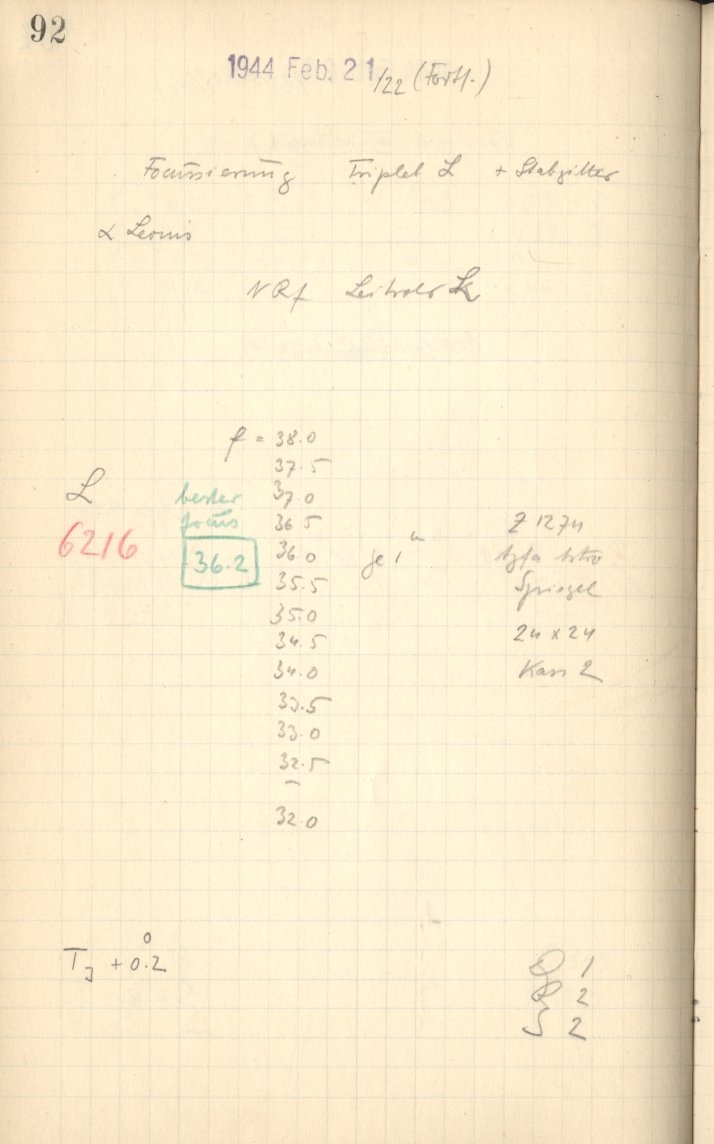 92
1944 Feb. 21/22 (Forts.)
Focussierung Triplet L + Stabgitter
α Leonis
L
6216
bester
focus
36.2
f = 38.0
37.5
37.0
36 5
36.0
35.5
35.0
34.5
34.0
33.5
33.0
32.5
–
32.0
je 1
Z 1274
Agfa Astro
Spiegel
24 x 24
Kass 2
T_J + 0.2°
1
2
S 2